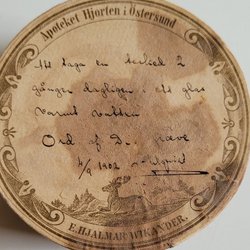 Apoteket Hjorten i Östersund
Att taga en tesked 2
gånger dagligen i ett glas
varmt vatten
Ord af D.
4/9 1902
E. HJALMAR WIKANDER.